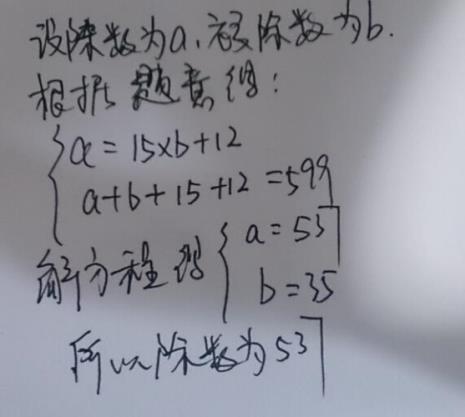 设除数为a,被除数为b.
根据题意得:
a=15×b+12
a+b+15+12=599
解方程得 a=537
b=35
所以除数为537